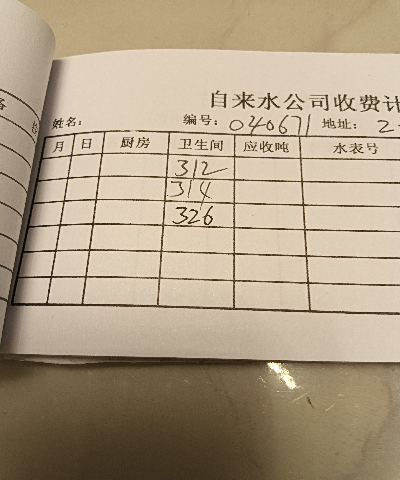 自来水公司收费计
姓名： 编号：040671 地址：2
月 日 厨房 卫生间 应收吨 水表号
312
314
326